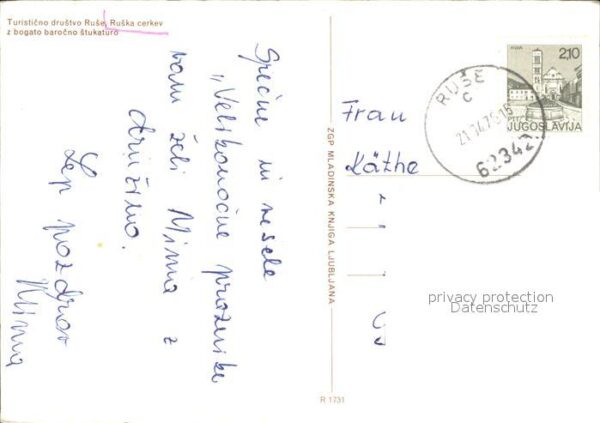 Turistično društvo Ruše, Ruška cerkev
z bogato baročno štukaturo
Srečne in vesele
"Velikonočne praznike
vam želi Mimia z
družino.
Lep pozdrav
Mimia
ZGP MLADINSKA KNJIGA LJUBLJANA
R 1731
Frau
Käthe
RUŠE
C
62342
2,10
JUGOSLAVIJA
privacy protection
Datenschutz